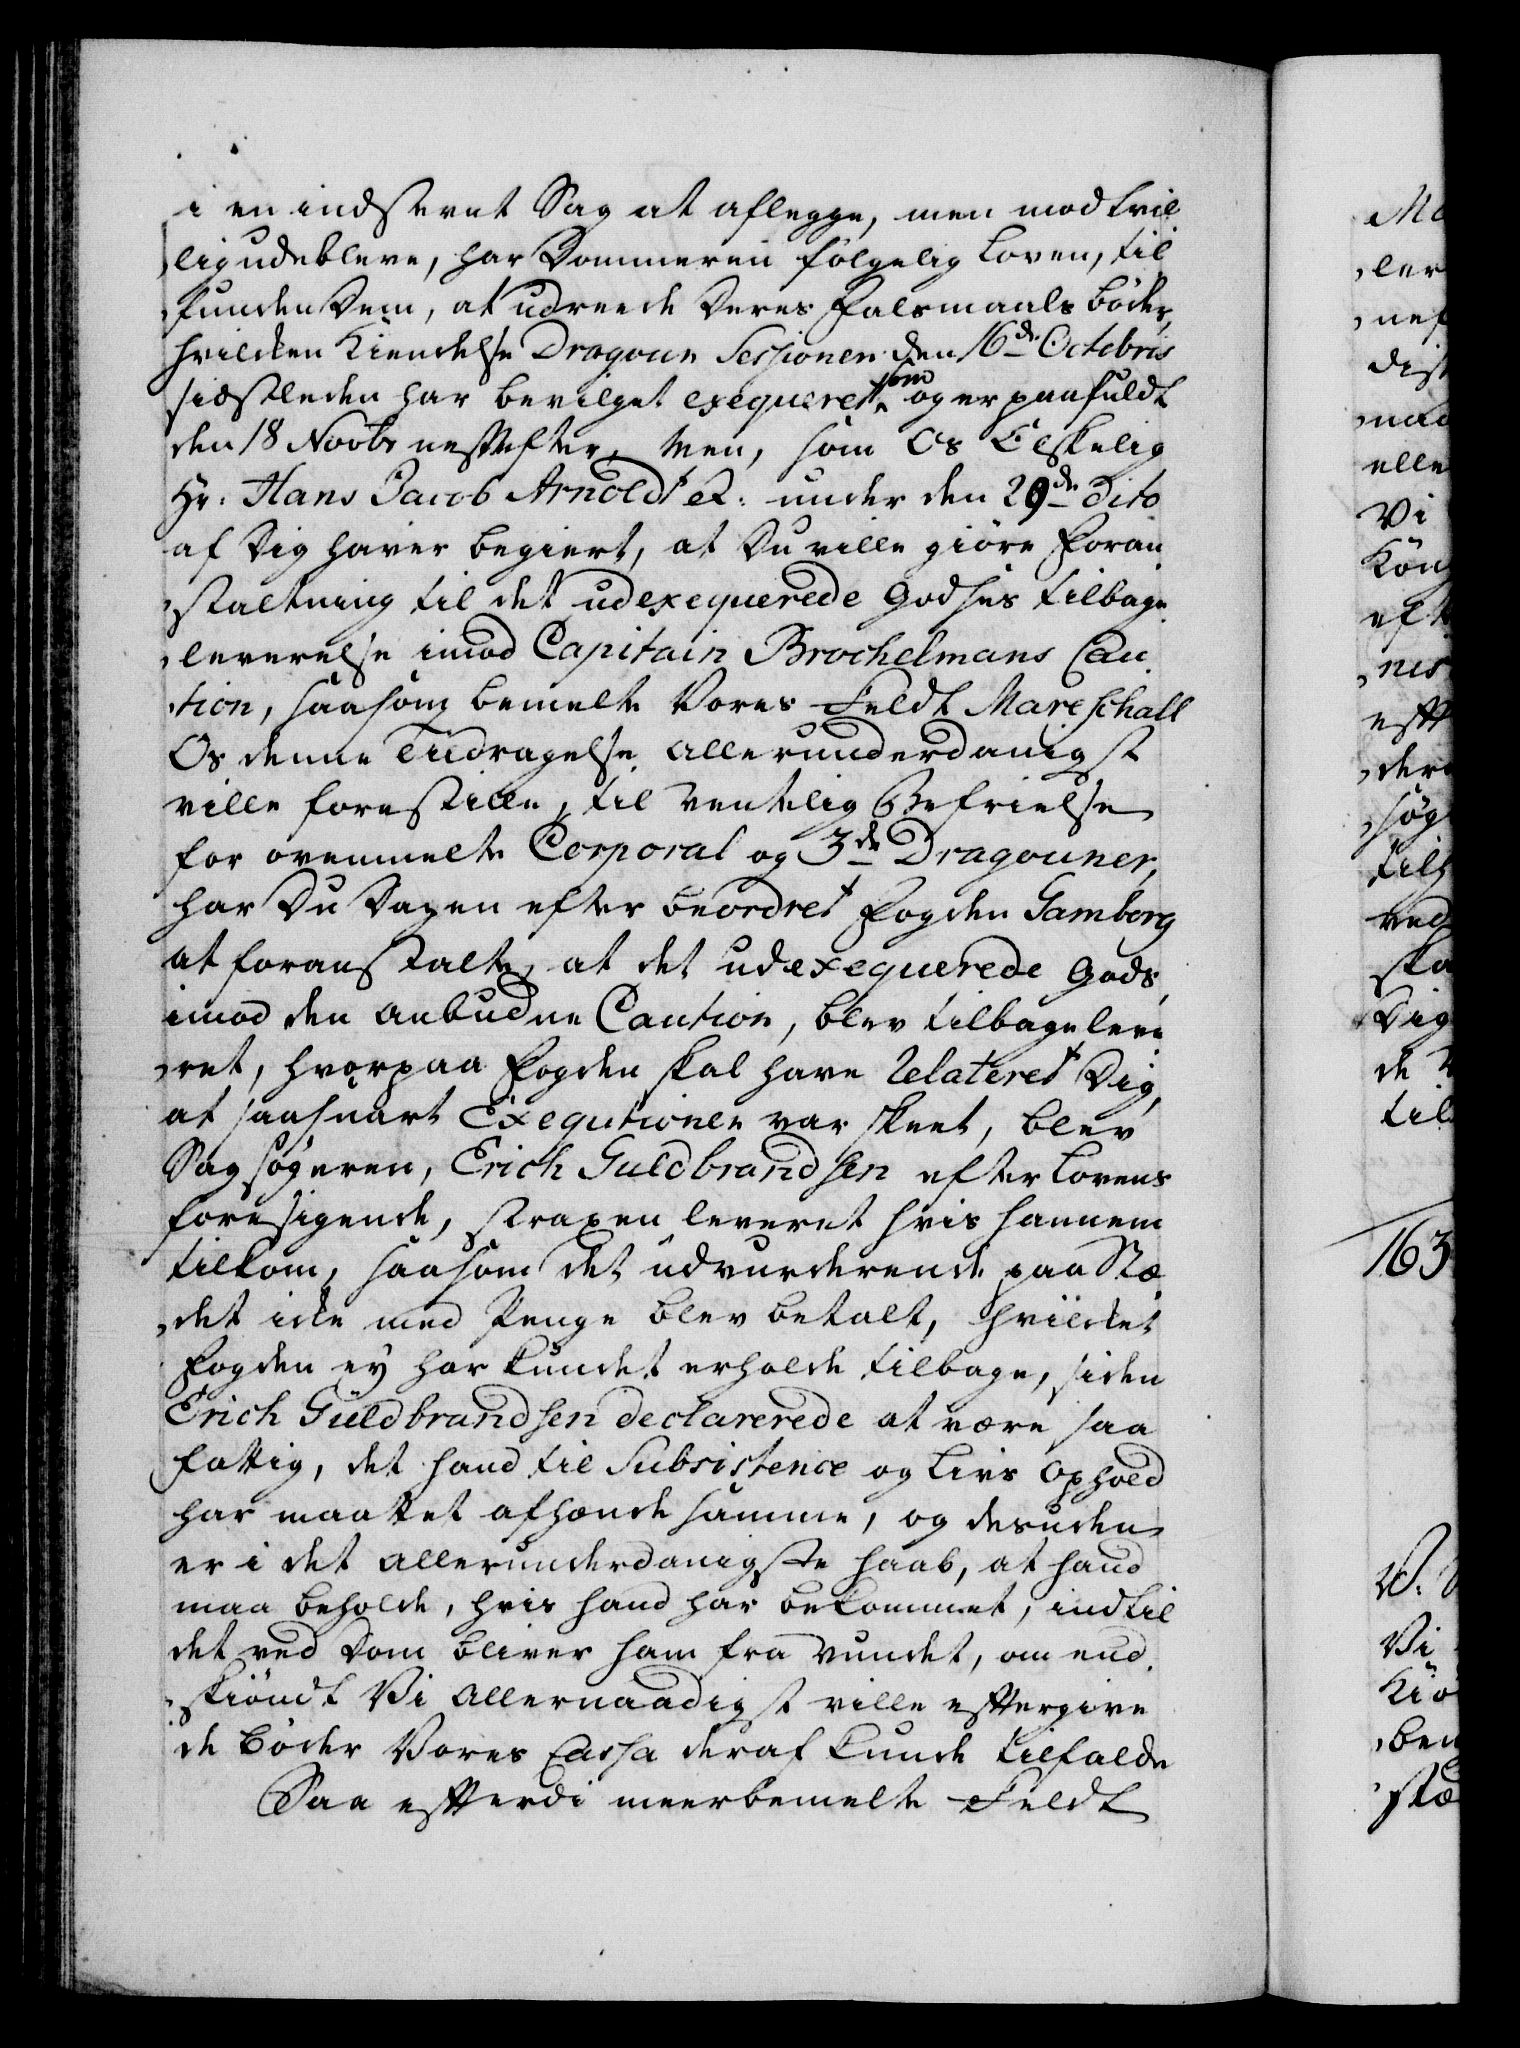 i en indstevnt Sag at aflegge, men modtvil
ligudebleve, har Dommeren følgelig Loven, til
funden Dem, at udreede Deres Falsmaals bøder,
hvilcken Kiendelse Dragoun Sessionen den 16de Octobris
sidstleden har bevilget exequeret som og er paafuldt
den 18 Novbr nestefter, Men, som Os Elskelig
Hr: Hans Jacob Arnoldt R: under den 29de Dito
af Dig haver begiert, at Du ville giøre Foran
staltning til det udexequerede Godses tilbage
leverelse imod Capitain Brochelmans Cau
tion, saasom bemelte Vores Feldt Mareschall
Os denne Tildragelse allerunderdanigst
ville forestille, til ventelig Befrielse
for ovenmelte Corporal og 3de Dragouner,
har Du Dagen efter beordret Fogden Gamborg
at foranstalte, at det udexequerede Gods,
imod den anbudne Caution, blev tilbageleve
ret, hvorpaa Fogden skal have Relateret Dig,
at saasnart Exequtionen var skeet, blev
Sagsøgeren, Erich Guldbrandsen efter Lovens
foresigende, straxen leveret hvis hannem
tilkom, saasom det udvurderende paa Stæ
det icke med Penge blev betalt, hvilcket
Fogden ey har kundet erholde tilbage, siden
Erich Guldbrandsen declarerede at være saa
fattig, det hand til Subsistence og Livs Ophold
har maattet afhænde samme, og desuden
er i det allerunderdanigste Haab, at hand
maa beholde, hvis hand har bekommet, indtil
det ved Dom bliver ham fra vundet, om end
skiøndt Vi allernaadigst ville eftergive
de Bøder Vores Cassa deraf kunde tilfalde
Saa efterdi meerbemelte Feldt
163